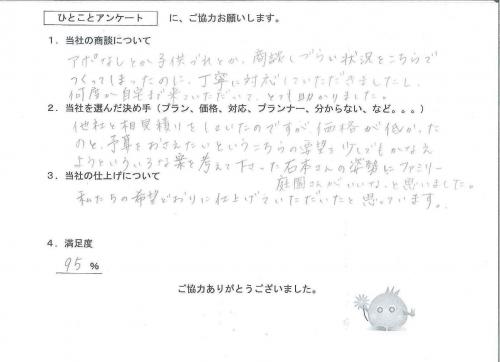 ひとことアンケート に、ご協力お願いします。
1．当社の商談について
アポなしとか子供づれとか、商談しづらい状況をこちらで
つくってしまったのに、丁寧に対応していただきましたし、
何度か自宅まで来ていただいて、とても助かりました。
2．当社を選んだ決め手（プラン、価格、対応、プランナー、分からない、など。。。）
他社と相見積りをしていたのですが価格が低かった
のと、予算をおさえたいというこちらの要望を少しでもかなえ
ようといろいろな案を考えて下さった石本さんの姿勢にファミリー
庭園さんがいいな、と思いました。
3．当社の仕上げについて
私たちの希望どおりに仕上げていただいたと思っています。
4．満足度
95 %
ご協力ありがとうございました。